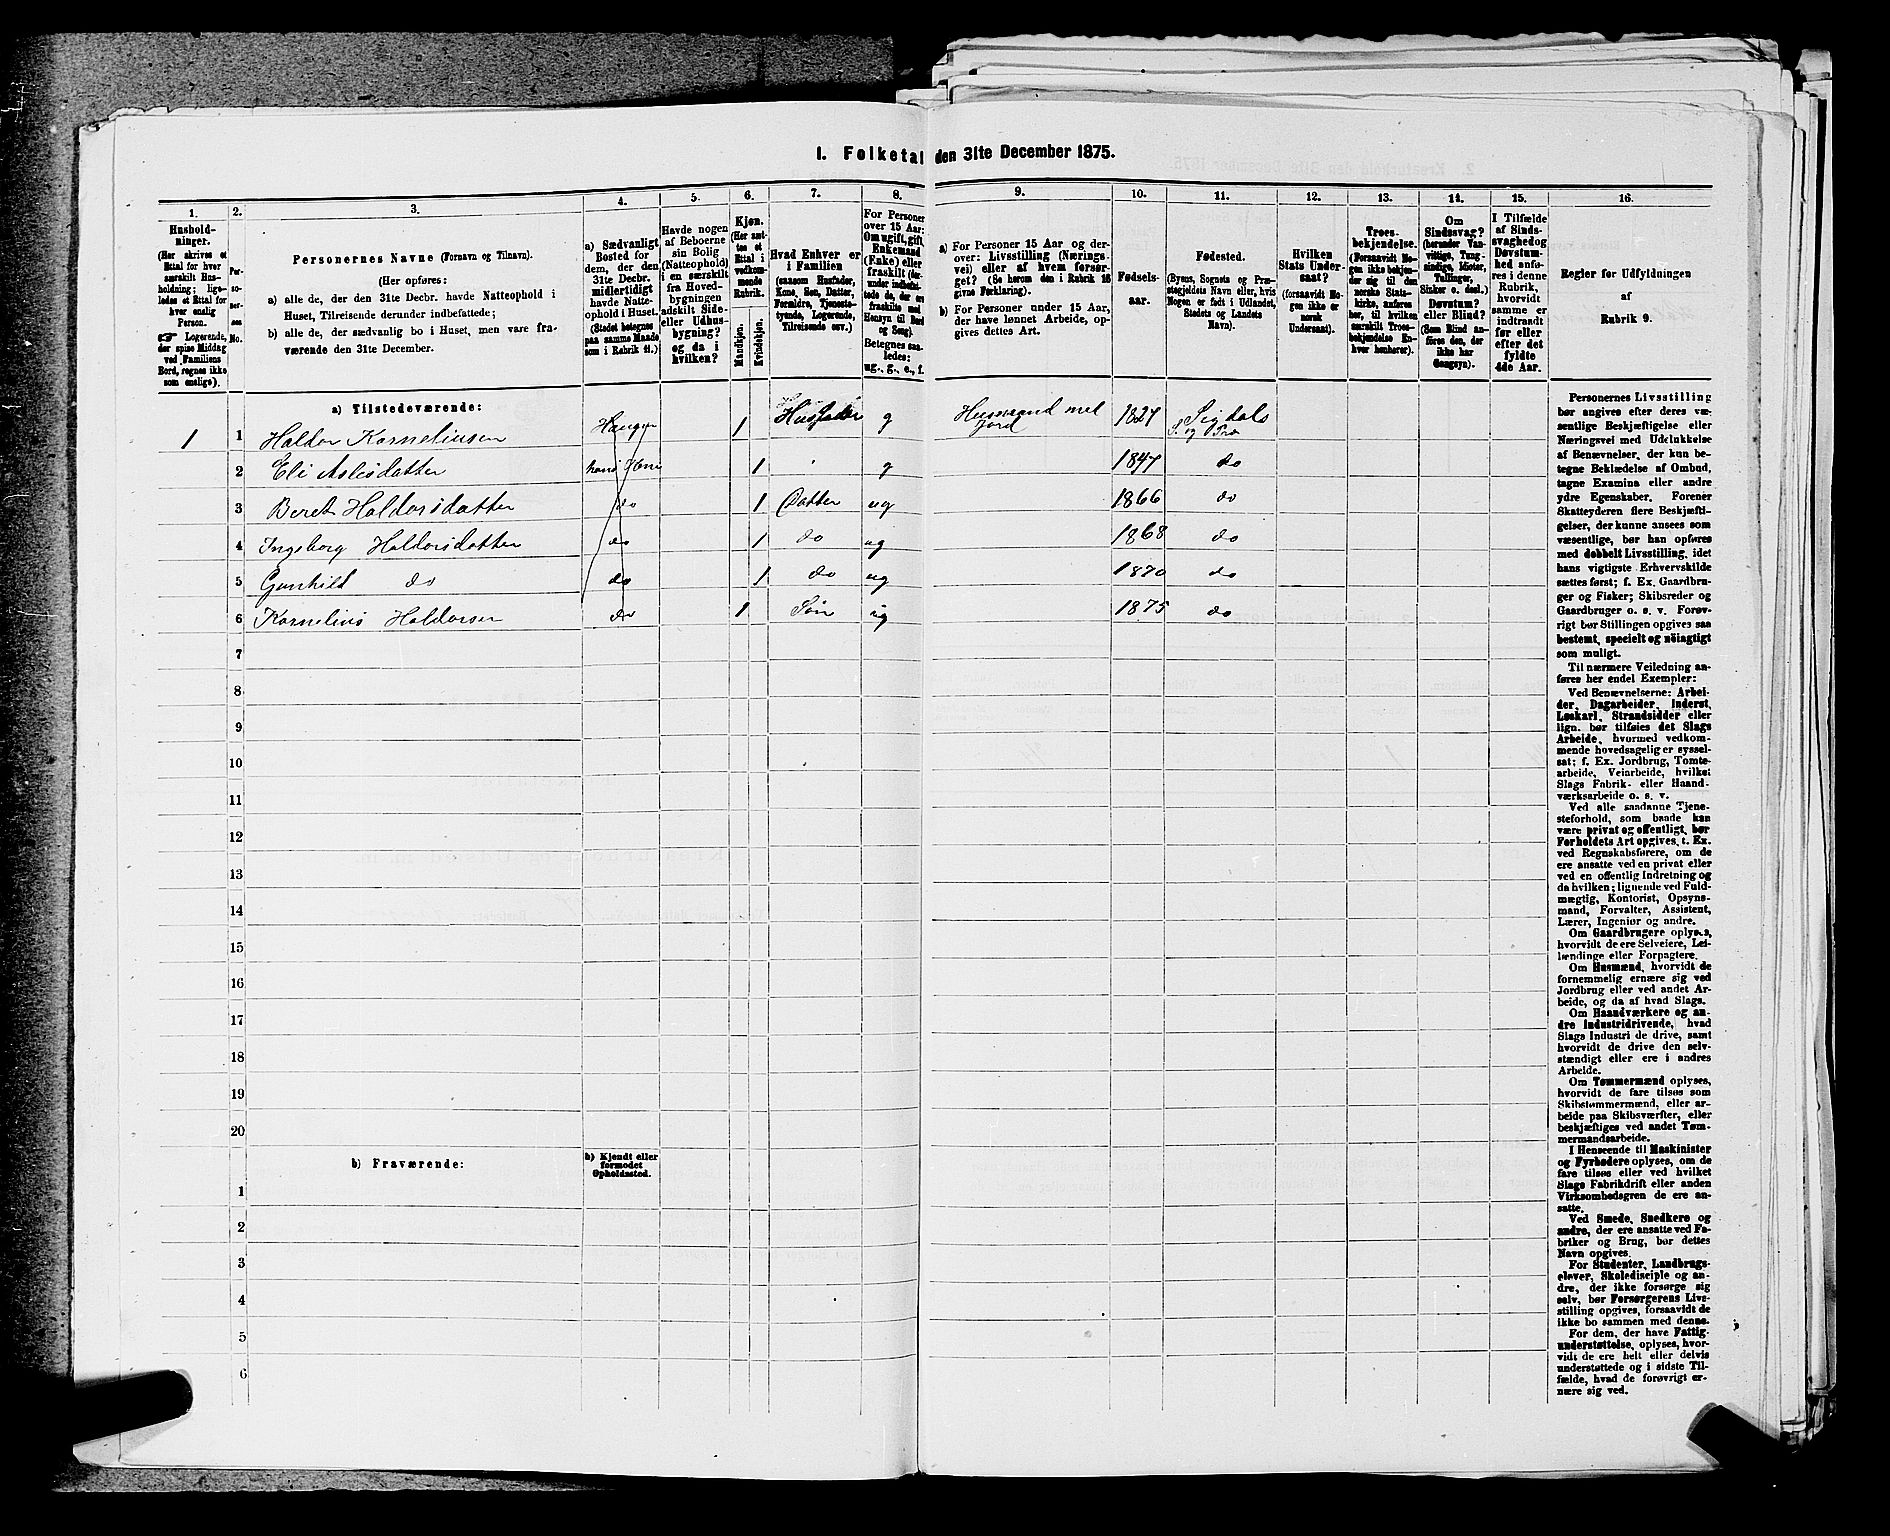 I. Folketal den 31te December 1875.
1. 2. 3. 4. 5. 6. 7. 8. 9. 10. 11. 12. 13. 14. 15. 16.
Hushold-
ninger.
(Her skrives et
Ettal for hver
særskilt Hus-
holdning; lige-
ledes et Ettal for
hver enslig
Person.
☞ Logerende,
der spise Middag
ved Familiens
Bord, regnes ikke
som enslige).
Per-
so-
ner-
nes
No.
Personernes Navne (Fornavn og Tilnavn).
(Her opføres:
a) alle de, der den 31te Decbr. havde Natteophold i
Huset, Tilreisende derunder indbefattede;
b) alle de, der sædvanlig bo i Huset, men vare fra-
værende den 31te December.
a) Sædvanligt
Bosted for
dem, der den
31te Decbr.
midlertidigt
havde Natte-
ophold i Huset.
(Stedet betegnes
paa samme Maade
som i Rubrik 11.)
Havde nogen
af Beboerne
sin Bolig
(Natteophold)
i en særskilt
fra Hoved-
bygningen
adskilt Side-
eller Udhus-
bygning?
og da i
hvilken?
Kjøn.
(Her sæt-
tes et
Ettal i
vedkom-
mende
Rubrik.
Mandkjøn.
Kvindekjøn.
Hvad Enhver er
i Familien
(saasom Husfader,
Kone, Søn, Datter,
Forældre, Tjeneste-
tyende, Logerende,
Tilreisende osv.)
For Personer
over 15 Aar:
Om ugift, gift,
Enkemand
(Enke) eller
fraskilt (der-
under indbefat-
tede de, der ere
fraskilte med
Hensyn til Bord
og Seng).
Betegnes saa-
ledes:
ug., g., e., f.
a) For Personer 15 Aar og der-
over: Livsstilling (Nærings-
vei) eller af hvem forsør-
get? (Se herom den i Rubrik 16
givne Forklaring).
b) For Personer under 15 Aar,
der have lønnet Arbeide, op-
gives dettes Art.
Fødsels-
aar.
Fødested.
(Byens, Sognets og Præ-
stegjeldets Navn eller, hvis
Nogen er født i Udlandet,
Stedets og Landets
Navn).
Hvilken
Stats Under-
saat?
(forsaavidt No-
gen ikke er
norsk
Undersaat).
Troes-
bekjendelse.
(Forsaavidt No-
gen ikke bekjen-
der sig til den
norske Stats-
kirke, anføres
her, til hvilken
særskilt Troes-
bekjendelse En-
hver henhører).
Om
Sindssvag?
(herunder Van-
vittige, Tung-
sindige, Idioter,
Tullinger,
Sinker o. desl.)
Døvstum?
eller Blind?
(Som Blind an-
føres den, der
ikke har
Gangsyn).
I Tilfælde
af Sinds-
svaghed og
Døvstum-
hed anfø-
res i denne
Rubrik,
hvorvidt
samme er
indtraadt
før eller
efter det
fyldte
4de Aar.
Regler for Udfyldningen
af
Rubrik 9.
a) Tilstedeværende:
1 1 Haldor Kornelinsen Haugen 1 Husfader g Husmand med Jord 1827 Sigdals S. og Pra
2 Eli Aslesdatter 1 g 1847 do
3 Beret Haldorsdatter do 1 Datter ug 1866 do
4 Ingeborg Haldorsdatter do 1 do ug 1868 do
5 Gunhild do do 1 do ug 1870 do
6 Kornelius Haldorsen do 1 Søn ug 1875 do
7
8
9
10
11
12
13
14
15
16
17
18
19
20
b) Fraværende:
b) Kjendt eller
formodet
Opholdssted.
1
2
3
4
5
6
Personernes Livsstilling
bør angives efter deres væ-
sentlige Beskjæftigelse eller
Næringsvei med Udelukkelse
af Benævnelser, der kun be-
tegne Beklædelse af Ombud,
tagne Examina eller andre
ydre Egenskaber. Forener
Skatteyderen flere Beskjæfti-
gelser, der kunne ansees som
væsentlige, bør han opføres
med dobbelt Livsstilling, idet
hans vigtigste Erhvervskilde
sættes først; f. Ex. Gaardbru-
ger og Fisker; Skibsreder og
Gaardbruger o. s. v. Forøv-
rigt bør Stillingen opgives saa
bestemt, specielt og nöiagtigt
som muligt.
Til nærmere Veiledning an-
føres her endel Exempler:
Ved Benævnelserne: Arbei-
der, Dagarbeider, Inderst,
Løskarl, Strandsidder eller
lign. bør tilføies det Slags
Arbeide, hvormed vedkom-
mende hovedsagelig er syssel-
sat; f. Ex. Jordbrug, Tomte-
arbeide, Veiarbeide, hvilket
Slags Fabrik- eller Haand-
værksarbeide o. s. v.
Ved alle saadanne Tjene-
steforhold, som baade kan
være privat og offentligt, bør
Forholdets Art opgives, t. Ex.
ved Regnskabsførere, om de
ere ansatte ved en privat eller
ved en offentlig Indretning og
da hvilken; lignende ved Fuld-
mægtig, Kontorist, Opsyns-
mand, Forvalter, Assistent,
Lærer, Ingeniør og andre.
Om Gaardbrugere oplyses,
hvorvidt de ere Selveiere, Lei-
lændinge eller Forpagtere.
Om Husmænd, hvorvidt de
fornemmelig ernære sig ved
Jordbrug eller ved andet Ar-
beide, og da af hvad Slags.
Om Haandværkere og an-
dre Industridrivende, hvad
Slags Industri de drive, samt
hvorvidt de drive den selv-
stændigt eller ere i andres
Arbeide.
Om Tømmermænd oplyses,
hvorvidt de fare tilsøs som
Skibstømmermænd, eller ar-
beide paa Skibsværfter, eller
beskjæftiges ved andet Tøm-
mermandsarbeide.
I Henseende til Maskinister
og Fyrbødere oplyses, om de
fare tilsøs eller ved hvilket
Slags Fabrikdrift eller anden
Virksomhedsgren de ere an-
satte.
Ved Smede, Snedkere og
andre, der ere ansatte ved Fa-
briker og Brug, bør dettes
Navn opgives.
For Studenter, Landbrugs-
elever, Skoledisciple og an-
dre, der ikke forsørge sig
selv, bør Forsørgerens Livs-
stilling opgives, forsaavidt de
ikke bo sammen med denne.
For dem, der have Fattig-
understøttelse, oplyses, hvor-
vidt de ere helt eller delvis
understøttede og i sidste Til-
fælde, hvad de forøvrigt er-
nære sig ved.